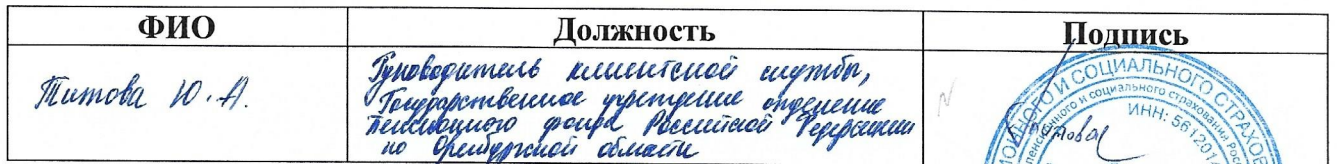 ФИО Должность Подпись
Титова Ю.А.
Руководитель клиентской службы,
Государственное учреждение отделение
пенсионного фонда Российской Федерации
по Оренбургской области
ИОННОГО И СОЦИАЛЬНОГО СТРАХО
пенсионного и социального страхования Рос
ИНН: 561201
Титова